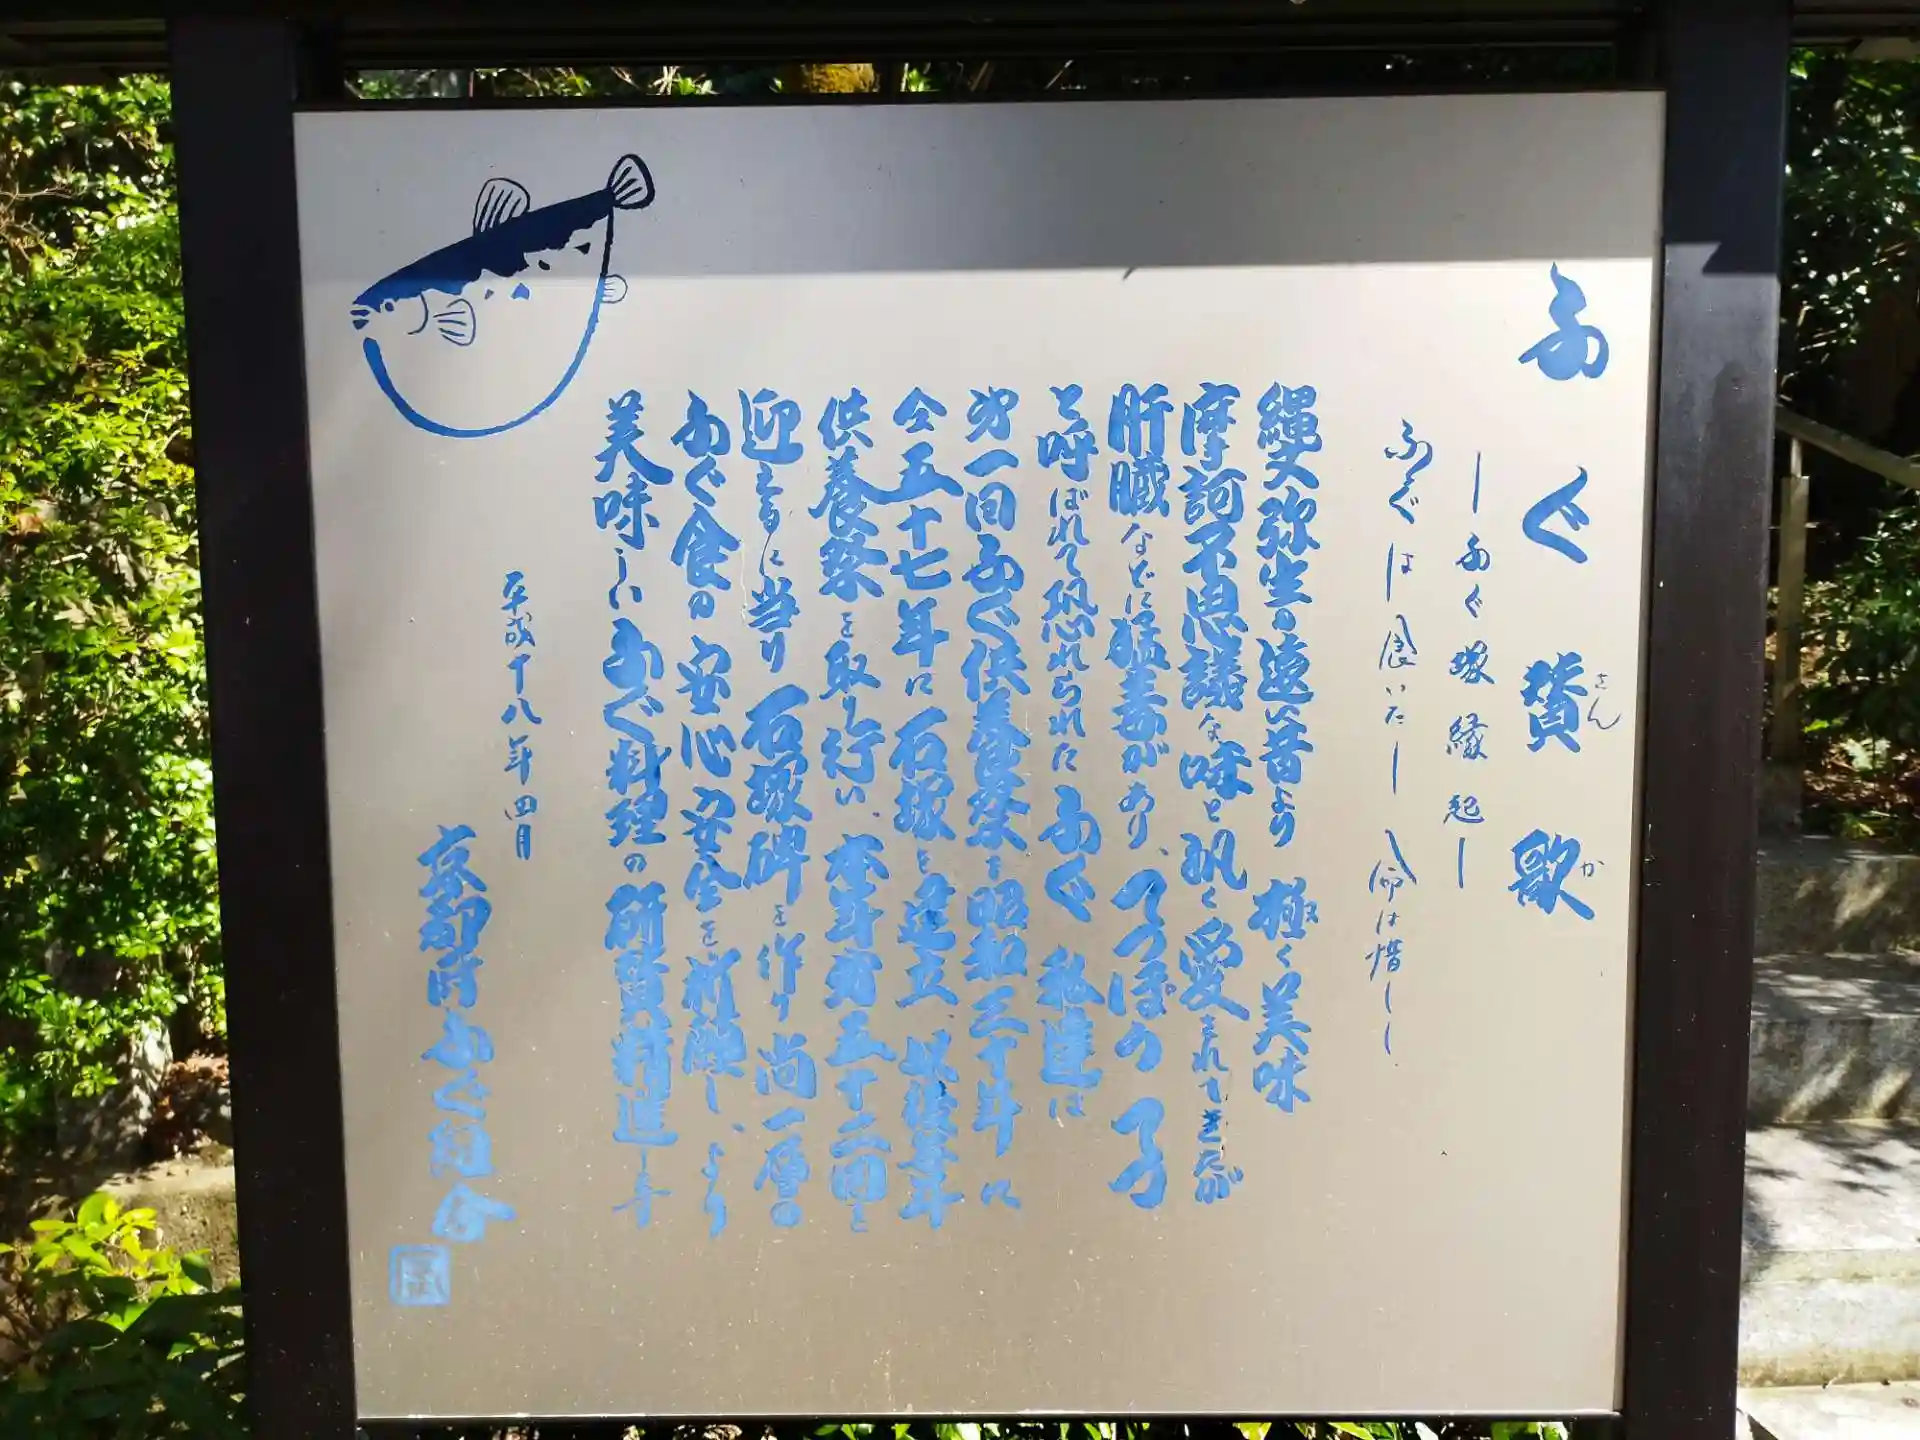 ふぐ賛歌
さん
か
―ふぐ塚縁起―
ふぐは食いたし 命は惜しし
縄文弥生の遠い昔より 極く美味
摩訶不思議な味と永く愛されてきたが
肝臓などに猛毒があり、てつぽうの てつ
と呼ばれて恐れられた ふぐ 私達は
第一回ふぐ供養祭を昭和三十年に
仝五十七年に石塚を建立、以後毎年
供養祭を取り行い、本年第五十二回を
迎えるに当り 石塚碑を作り 尚一層の
ふぐ食の安心 安全を祈願し、より
美味しいふぐ料理の研賛精進し〼
平成十八年四月
京都府ふぐ組合